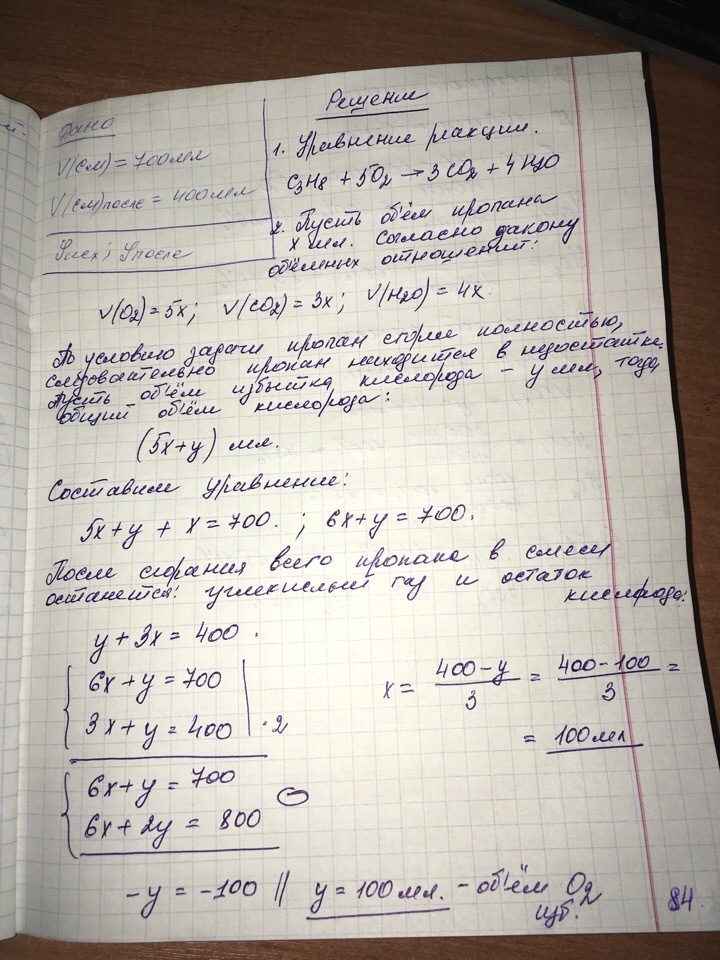 Дано
V(см) = 700мл
V(см)после = 400мл
φисх; φпосле
Решение
1. Уравнение реакции.
C3H8 + 5O2 → 3CO2 + 4H2O
2. Пусть объём пропана
x мл. Согласно закону
объёмных отношений:
V(O2) = 5x; V(CO2) = 3x; V(H2O) = 4x.
По условию задачи пропан сгорел полностью,
следовательно пропан находится в недостатке.
Пусть объём избытка кислорода – y мл, тогда
общий объём кислорода:
(5x+y) мл.
Составим уравнение:
5x+y + x = 700. ; 6x+y = 700.
После сгорания всего пропана в смеси
останется: углекислый газ и остаток
кислорода:
y + 3x = 400.
6x + y = 700
3x + y = 400 | ·2
x = (400–y)/3 = (400–100)/3 =
= 100мл
6x+y = 700
6x+2y = 800
–
-y = -100 || y = 100мл. – объём O2
изб.
84.